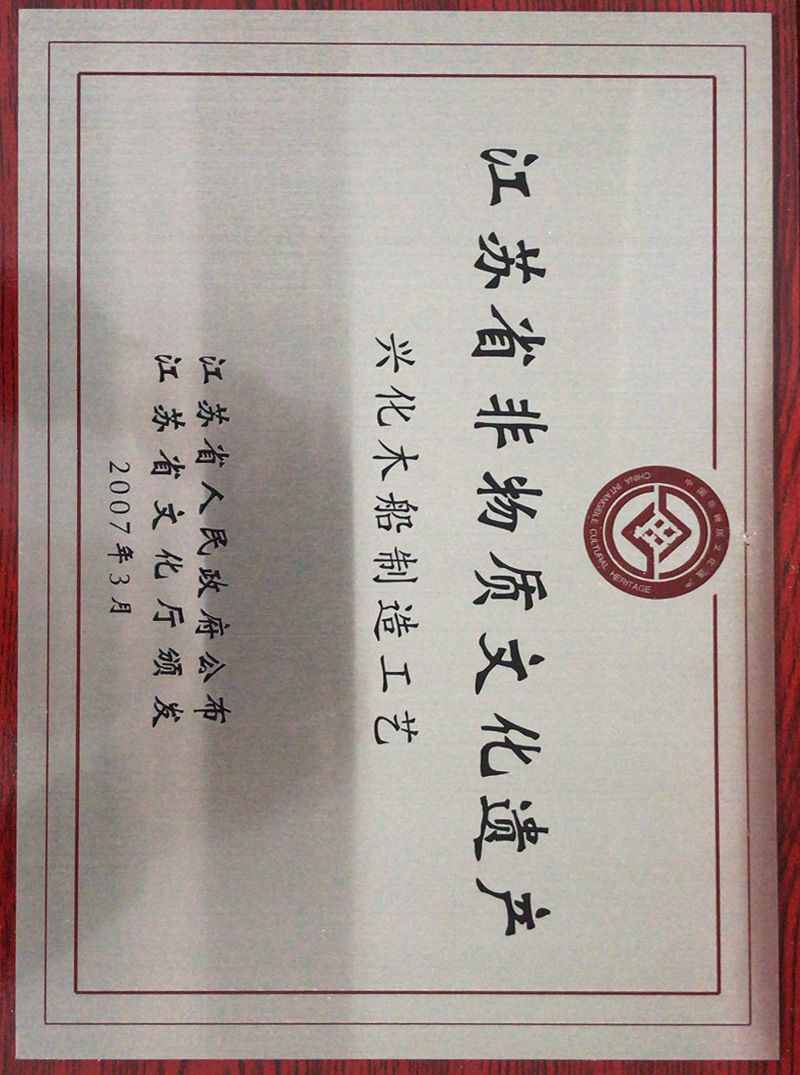 中国非物质文化遗产
CHINA INTANGIBLE CULTURAL HERITAGE
江苏省非物质文化遗产
兴化木船制造工艺
江苏省人民政府公布
江苏省文化厅颁发
2007年3月